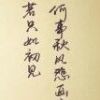 何事秋风悲画
若只如初见